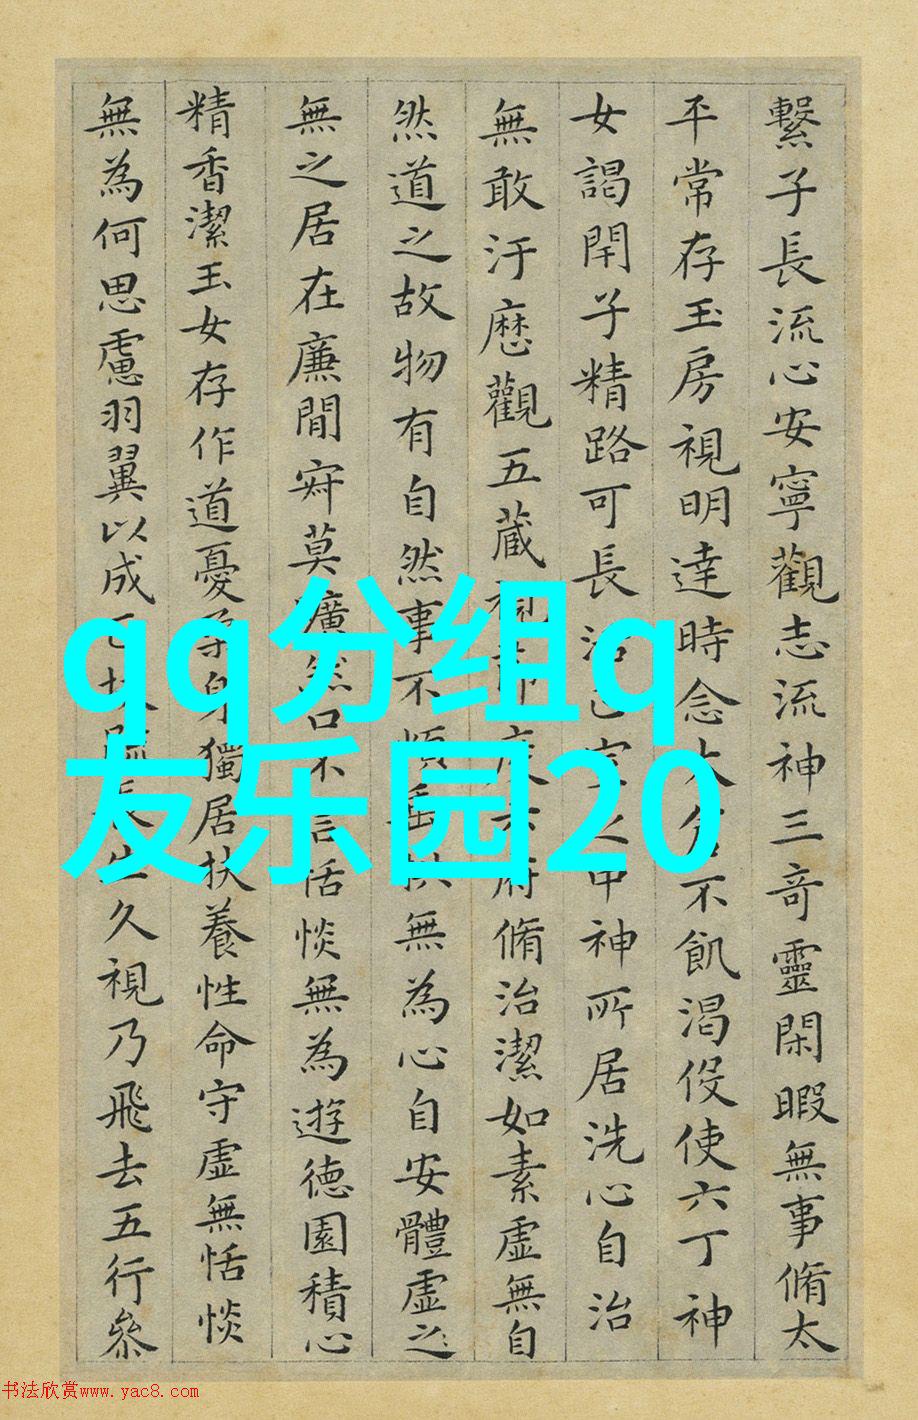 繫子長流心安寧觀志流神三竒靈閑暇無事脩太
平常存玉房視明達時念大倉不飢渴伇使六丁神
女謁閇子精路可長活正室之中神所居洗心自治
無敢汙歷觀五蔵視節度六府脩治潔如素虛無自
然道之故物有自然事不煩垂拱無為心自安體虛之
無之居在廉間寂莫曠然口不言恬惔無為遊德園積心
精香潔玉女存作道憂柔身獨居扶養性命守虛無恬惔
無為何思慮羽翼以成正扶疏長生久視乃飛去五行參
qq分组q
友乐园20
书法欣赏www.yac8.com